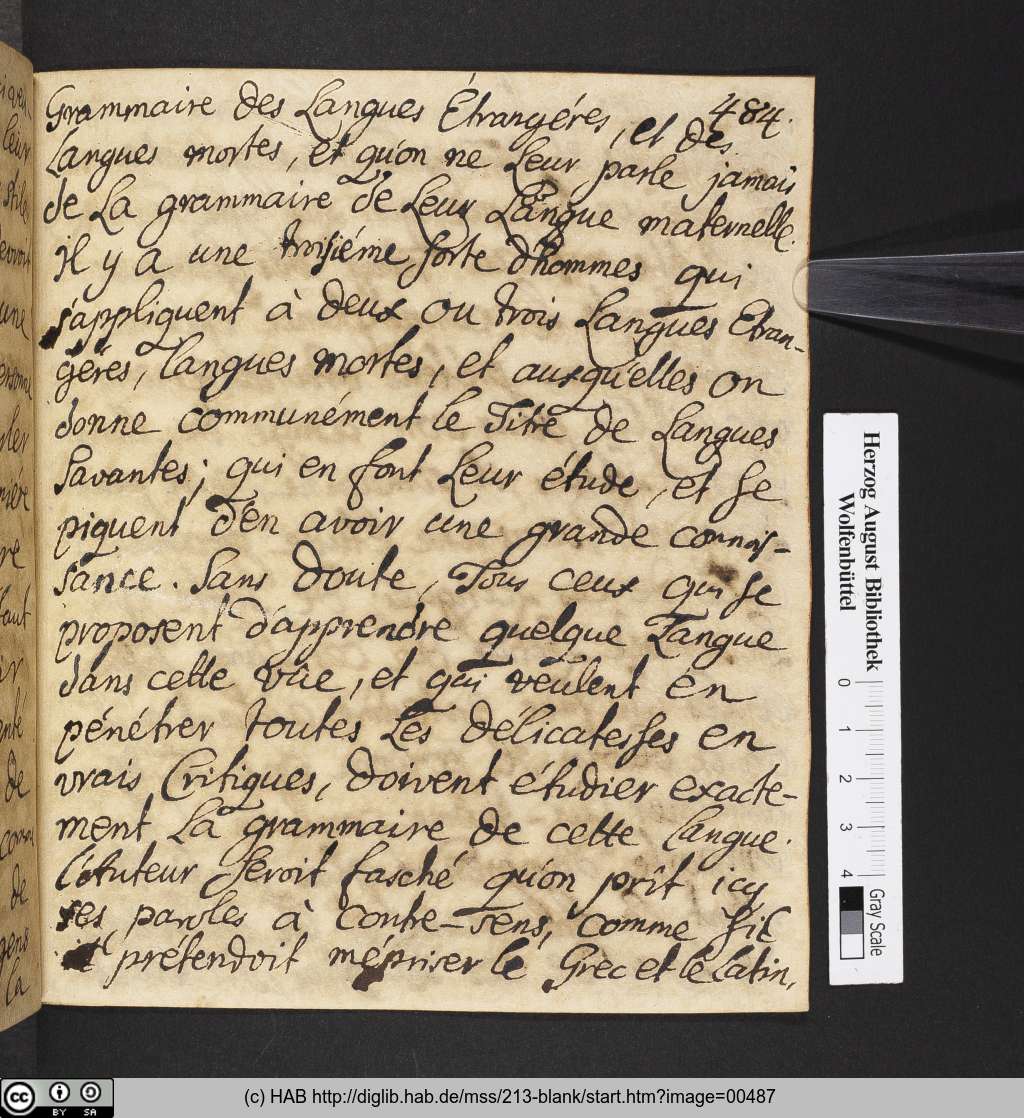 484.
Grammaire des Langues Étrangéres, et des
Langues mortes, et qu'on ne leur parle jamais
de La grammaire de Leur Langue maternelle.
il y a une troisiéme sorte d'hommes qui
s'appliquent à deux ou trois Langues Etran-
géres, langues mortes, et auxqu'elles on
donne communément le Titre de Langues
Savantes; qui en font Leur étude, et se
piquent d'en avoir une grande connois-
sance. Sans doute, Tous ceux qui se
proposent d'apprendre quelque Langue
dans cette vüe, et qui veulent en
pénétrer toutes Les délicatesses en
vrais Critiques, doivent étudier exacte-
ment La grammaire de cette langue.
L'Auteur seroit fasché qu'on prît icy
ses paroles à contre-sens, comme s'il
prétendoit mépriser le Grec et le Latin,
Herzog August Bibliothek
Wolfenbüttel
0 1 2 3 4
Gray Scale
(c) HAB http://diglib.hab.de/mss/213-blank/start.htm?image=00487
BY SA